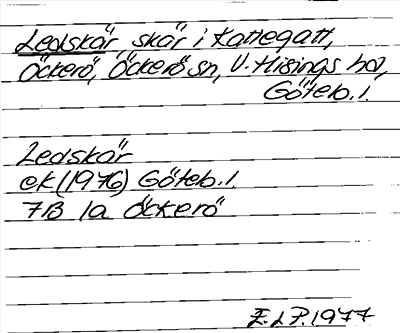 Ledskär, skär i Kattegatt,
Öckerö, Öckerö sn, V. Hisings hd,
Göteb. l.
Ledskär
ek (1976) Göteb. l.
7B 1a Öckerö
E. L P. 1977